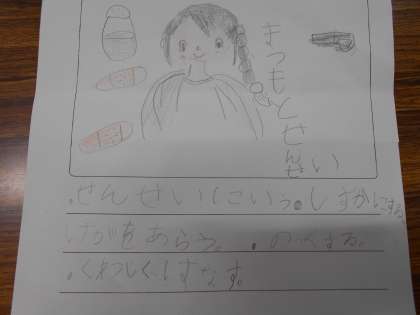 まつもと
せんせい
・せんせいにいう。しずかにする。
けがをあらう。・のくする。
・くわしくはなす。